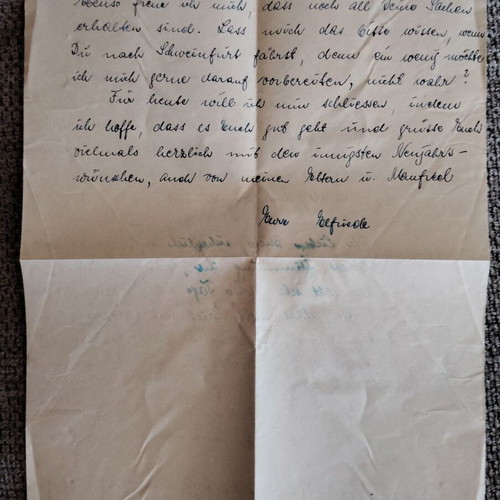 ebenso freue ich mich, dass noch all Deine Sachen
erhalten sind. Lass mich das bitte wissen, wenn
Du nach Schweinfurt fährst, denn ein wenig möchte
ich mich gerne darauf vorbereiten, nicht wahr?
Für heute will ich nun schliessen, indem
ich hoffe, dass es Euch gut geht und grüsse Euch
vielmals herzlich mit den innigsten Neujahrs-
wünschen, auch von meinen Eltern u. Manfred
Eure Elfriede